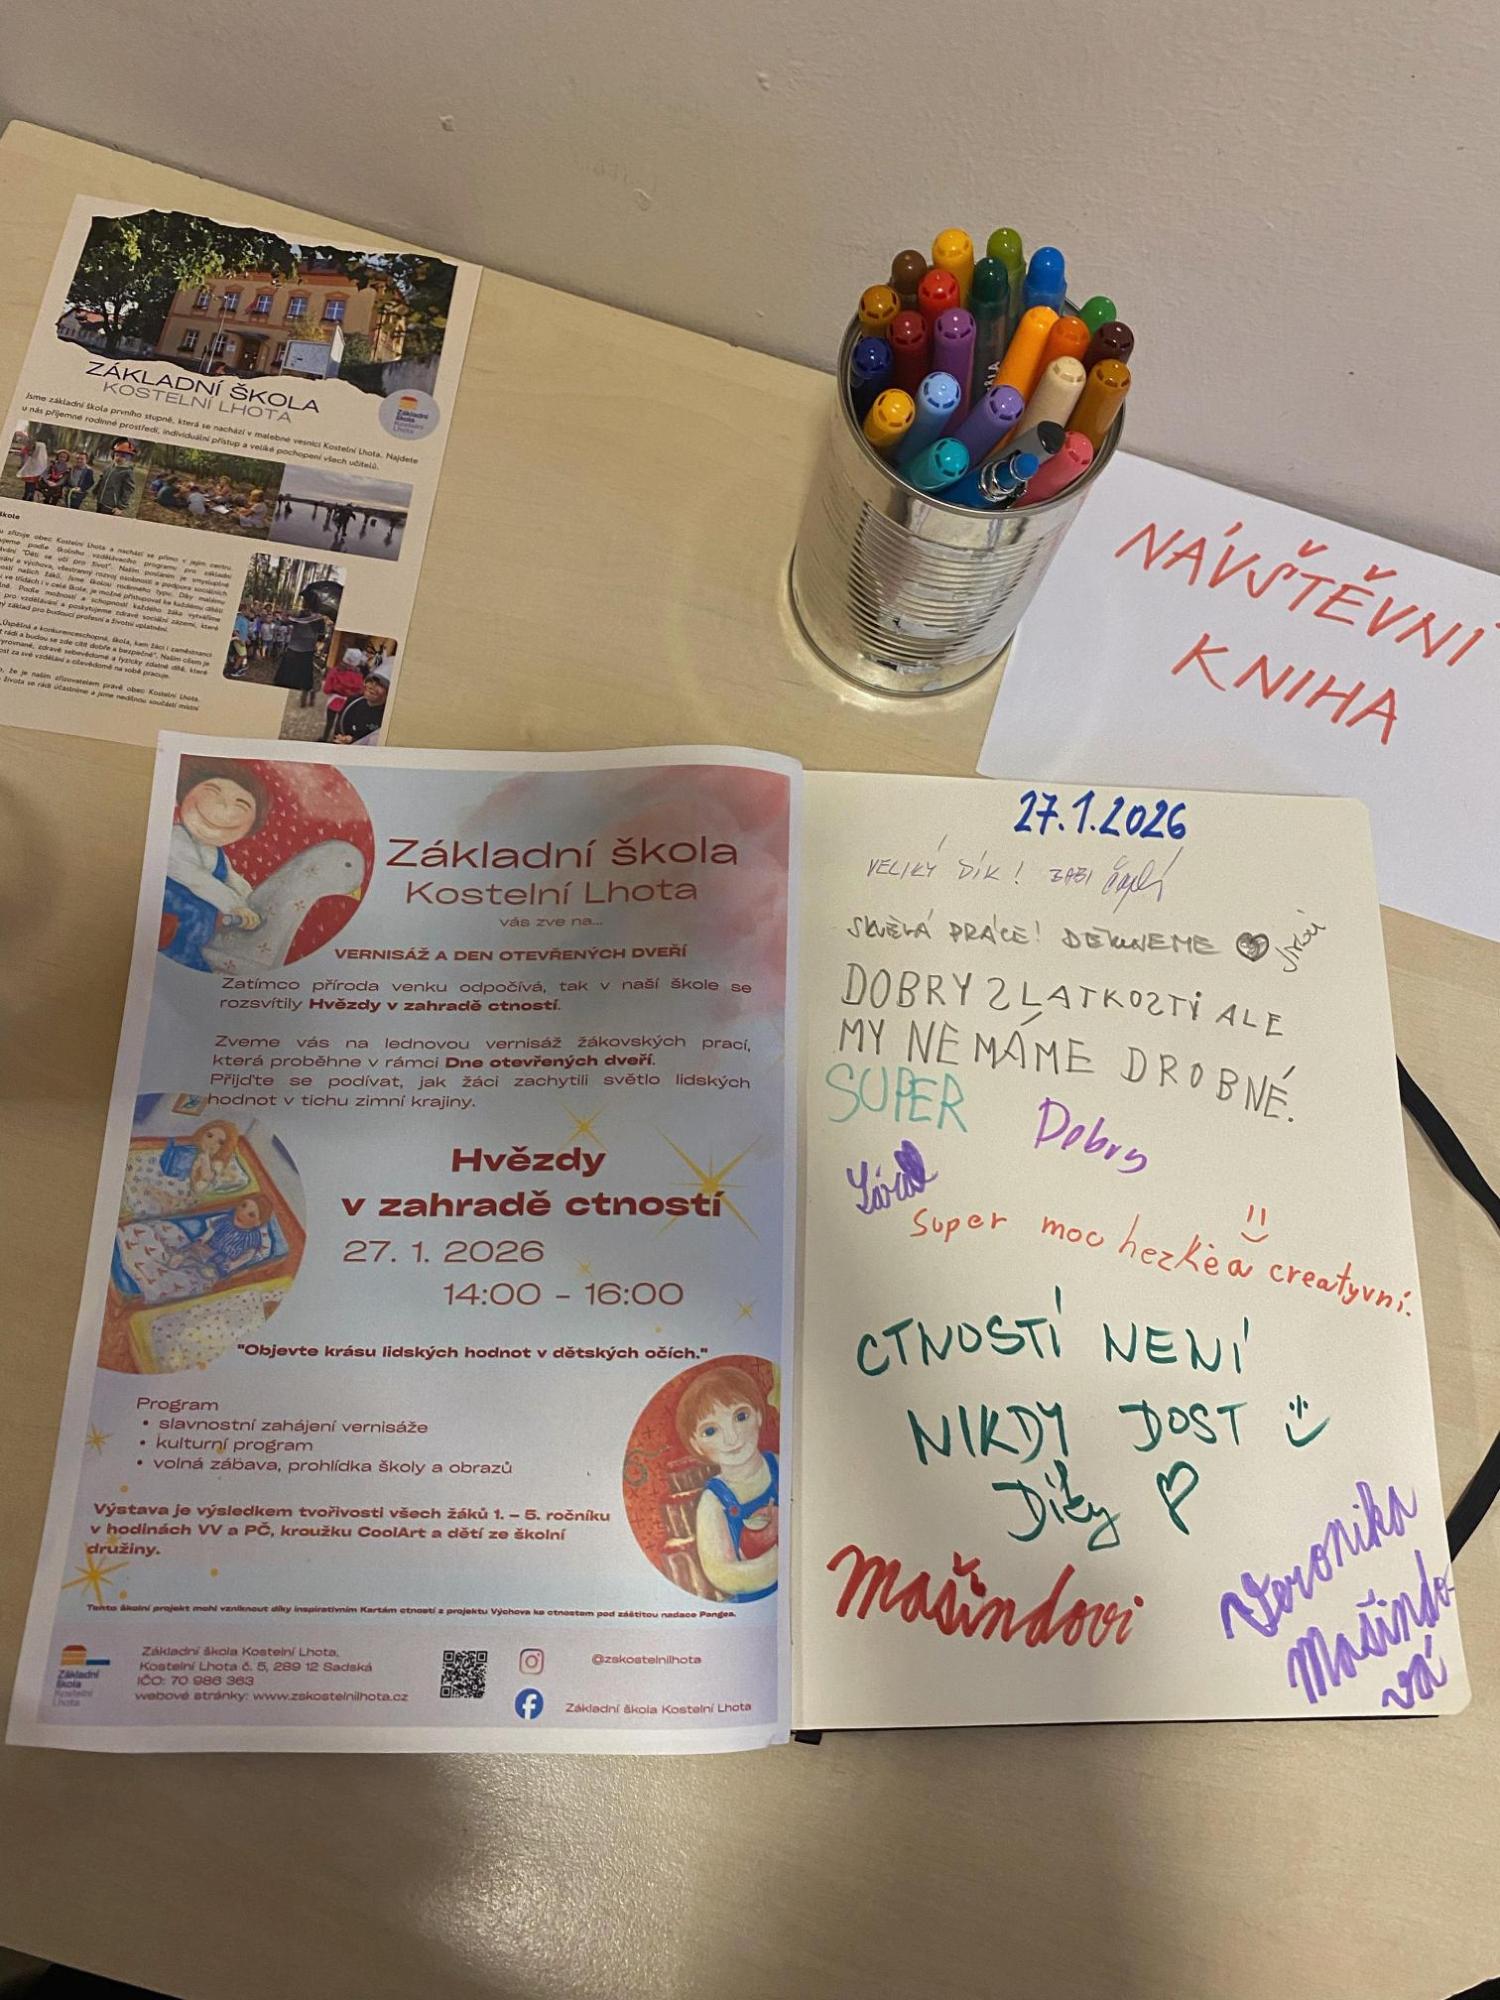 ZÁKLADNÍ ŠKOLA
KOSTELNÍ LHOTA
Základní
škola
Kostelní
Lhota
Jsme základní škola prvního stupně, která se nachází v malebné vesnici Kostelní Lhota. Najdete
u nás příjemné rodinné prostředí, individuální přístup a veliké pochopení všech učitelů.
NÁVŠTĚVNÍ
KNIHA
Základní škola
Kostelní Lhota
vás zve na...
VERNISÁŽ A DEN OTEVŘENÝCH DVEŘÍ
Zatímco příroda venku odpočívá, tak v naší škole se
rozsvítily Hvězdy v zahradě ctností.
Zveme vás na lednovou vernisáž žákovských prací,
která proběhne v rámci Dne otevřených dveří.
Přijďte se podívat, jak žáci zachytili světlo lidských
hodnot v tichu zimní krajiny.
Hvězdy
v zahradě ctností
27. 1. 2026
14:00 - 16:00
"Objevte krásu lidských hodnot v dětských očích."
Program
• slavnostní zahájení vernisáže
• kulturní program
• volná zábava, prohlídka školy a obrazů
Výstava je výsledkem tvořivosti všech žáků 1. – 5. ročníku
v hodinách VV a PČ, kroužku CoolArt a dětí ze školní
družiny.
Tento školní projekt mohl vzniknout díky inspirativním Kartám ctností z projektu Výchova ke ctnostem pod záštitou nadace Pangea.
Základní
škola
Kostelní
Lhota
Základní škola Kostelní Lhota,
Kostelní Lhota č. 5, 289 12 Sadská
IČO: 70 986 363
webové stránky: www.zskostelnilhota.cz
@zskostelnilhota
Základní škola Kostelní Lhota
27.1.2026
VELIKÝ DÍK!
SKVĚLÁ PRÁCE! DĚKUJEME
DOBRY ZLATKOSTI ALE
MY NEMÁME DROBNÉ.
SUPER
Dobry
Super moc hezké a creatyvní.
CTNOSTÍ NENÍ
NIKDY DOST
Díky
Mašindovi
Veronika
Mašindo-
vá